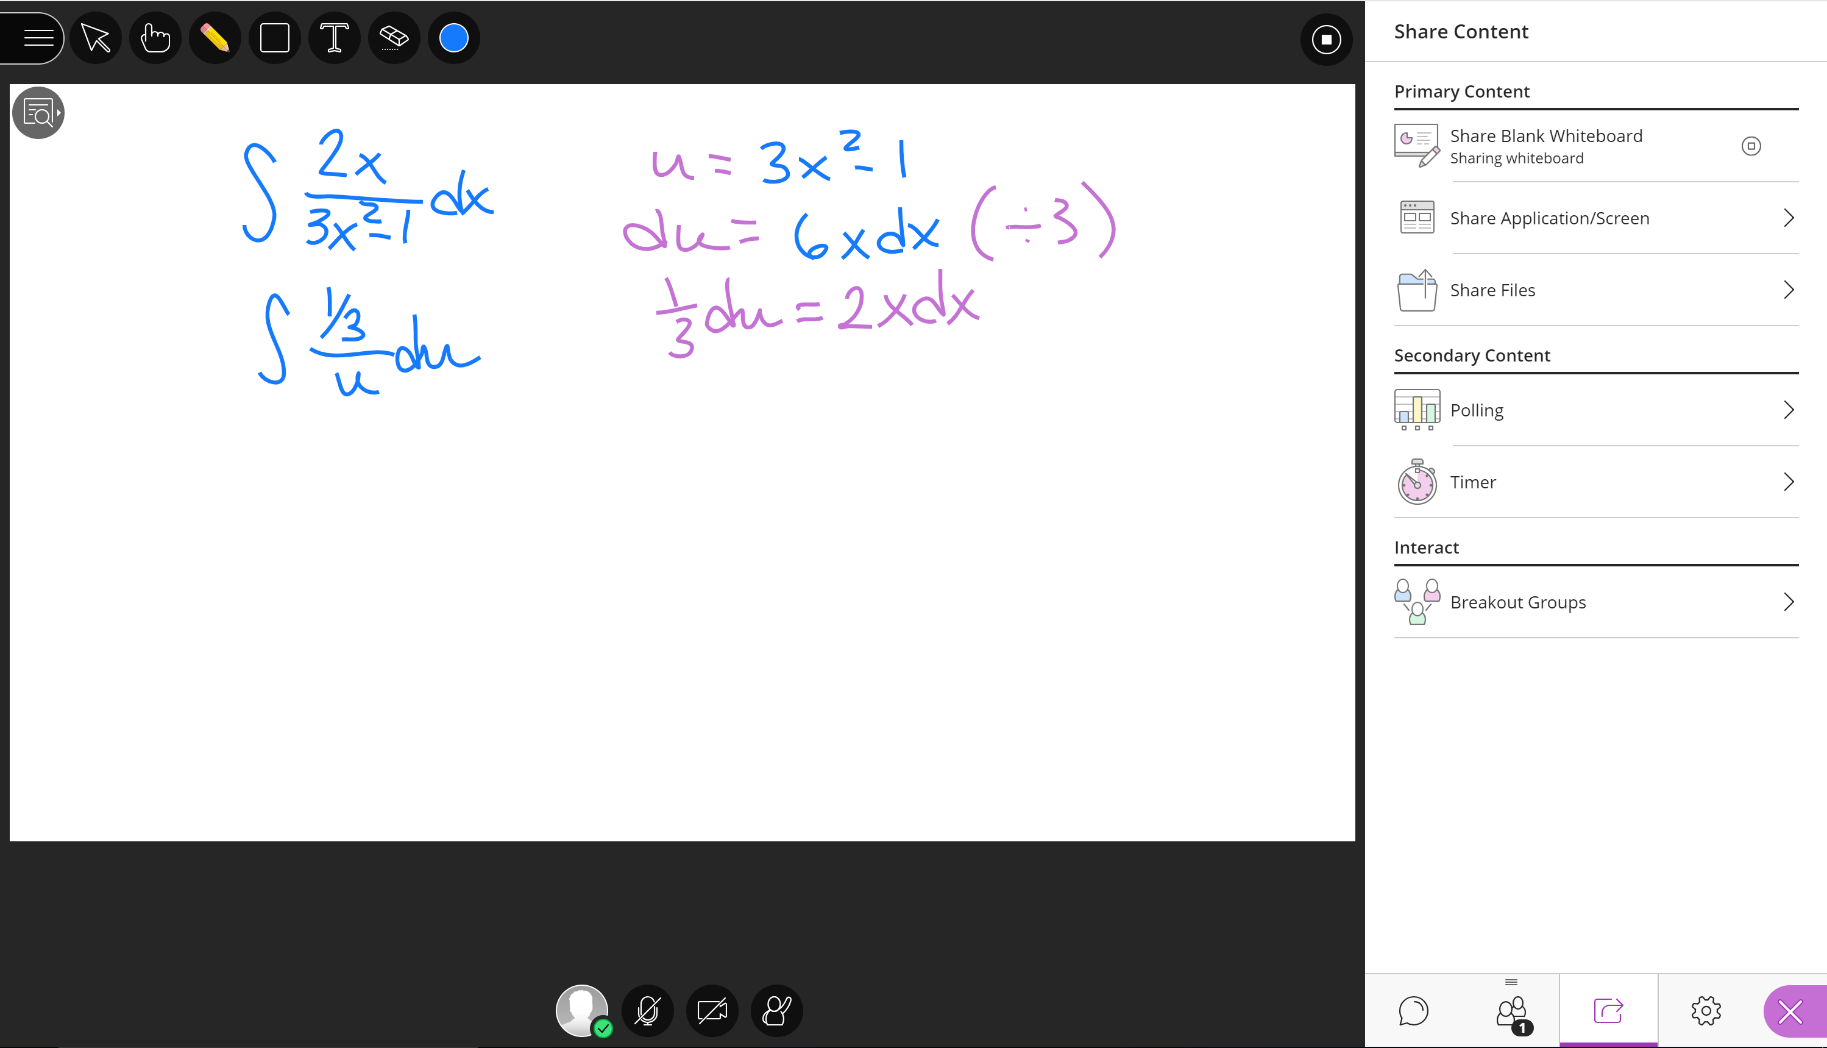 ∫ 2x/(3x²-1) dx
u = 3x²-1
du = 6xdx (÷3)
1/3 du = 2xdx
∫ (1/3)/u du
T
Share Content
Primary Content
Share Blank Whiteboard
Sharing whiteboard
Share Application/Screen
Share Files
Secondary Content
Polling
Timer
Interact
Breakout Groups
1